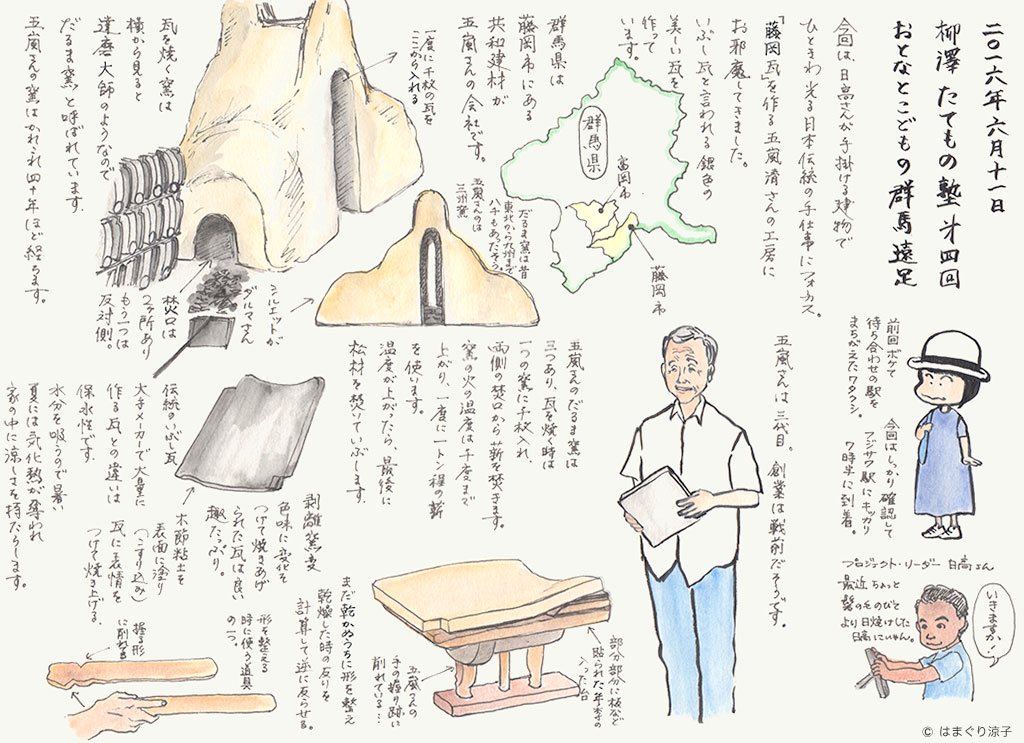 二〇一六年六月十一日
柳澤たてもの塾 才四回
おとなとこどもの群馬遠足
今回は、日高さんが手掛ける建物で
ひときわ光る日本伝統の手仕事にフォーカス。
「藤岡瓦」を作る五嵐清さんの工房に
お邪魔してきました。
いぶし瓦と言われる銀色の
美しい瓦を
作って
います。
群馬県
富岡市
藤岡市
群馬県は
藤岡市にある
共和建材が
五嵐さんの会社です。
一度に千枚の瓦を
ここから入れる
瓦を焼く窯は
横から見ると
達磨大師のようなので
だるま窯と呼ばれています。
五嵐さんの窯はかれこれ四十年ほど経ちます。
だるま窯は昔
東北から九州まで
ハチもあったそう。
五嵐さんのは
三州窯
シルエットが
ダルマさん
焚口は
2ヶ所あり
もう一つは
反対側。
前回ボケて
待ち合わせの駅を
まちがえたワタクシ。
今回はしっかり確認して
フジサワ駅にキッカリ
7時半に到着。
プロジェクト・リーダー 日高さん
最近ちょっと
髪の毛のびて
より日焼けした
日高にいさん。
いきますか!
五嵐さんは三代目。創業は戦前だそうです。
五嵐さんのだるま窯は
三つあり、瓦を焼く時は
一つの窯に千枚入れ、
両側の焚口から薪を焚きます。
窯の火の温度は千度まで
上がり、一度に一トン程の薪
を使います。
温度が上がったら、最後に
松材を焚いていぶします。
伝統のいぶし瓦
大手メーカーで大量に
作る瓦との違いは
保水性です。
水分を吸うので暑い
夏には気化熱が奪われ
家の中に涼しさを持たらします。
剥離窯変
色味に変化を
つけて焼きあげ
られた瓦は、良い
趣たっぷり。
木節粘土を
表面に塗り
(こすり込み)
瓦に表情を
つけて焼き上げる。
まだ乾かぬうちに形を整え
乾燥した時の反りを
計算して逆に反らせる。
形を整える
時に使う道具
の一つ。
握る形
に削ってる
部分部分に板など
貼られた年季の
入った台
五嵐さんの
手の握り跡に
削れている…
© はまぐり涼子